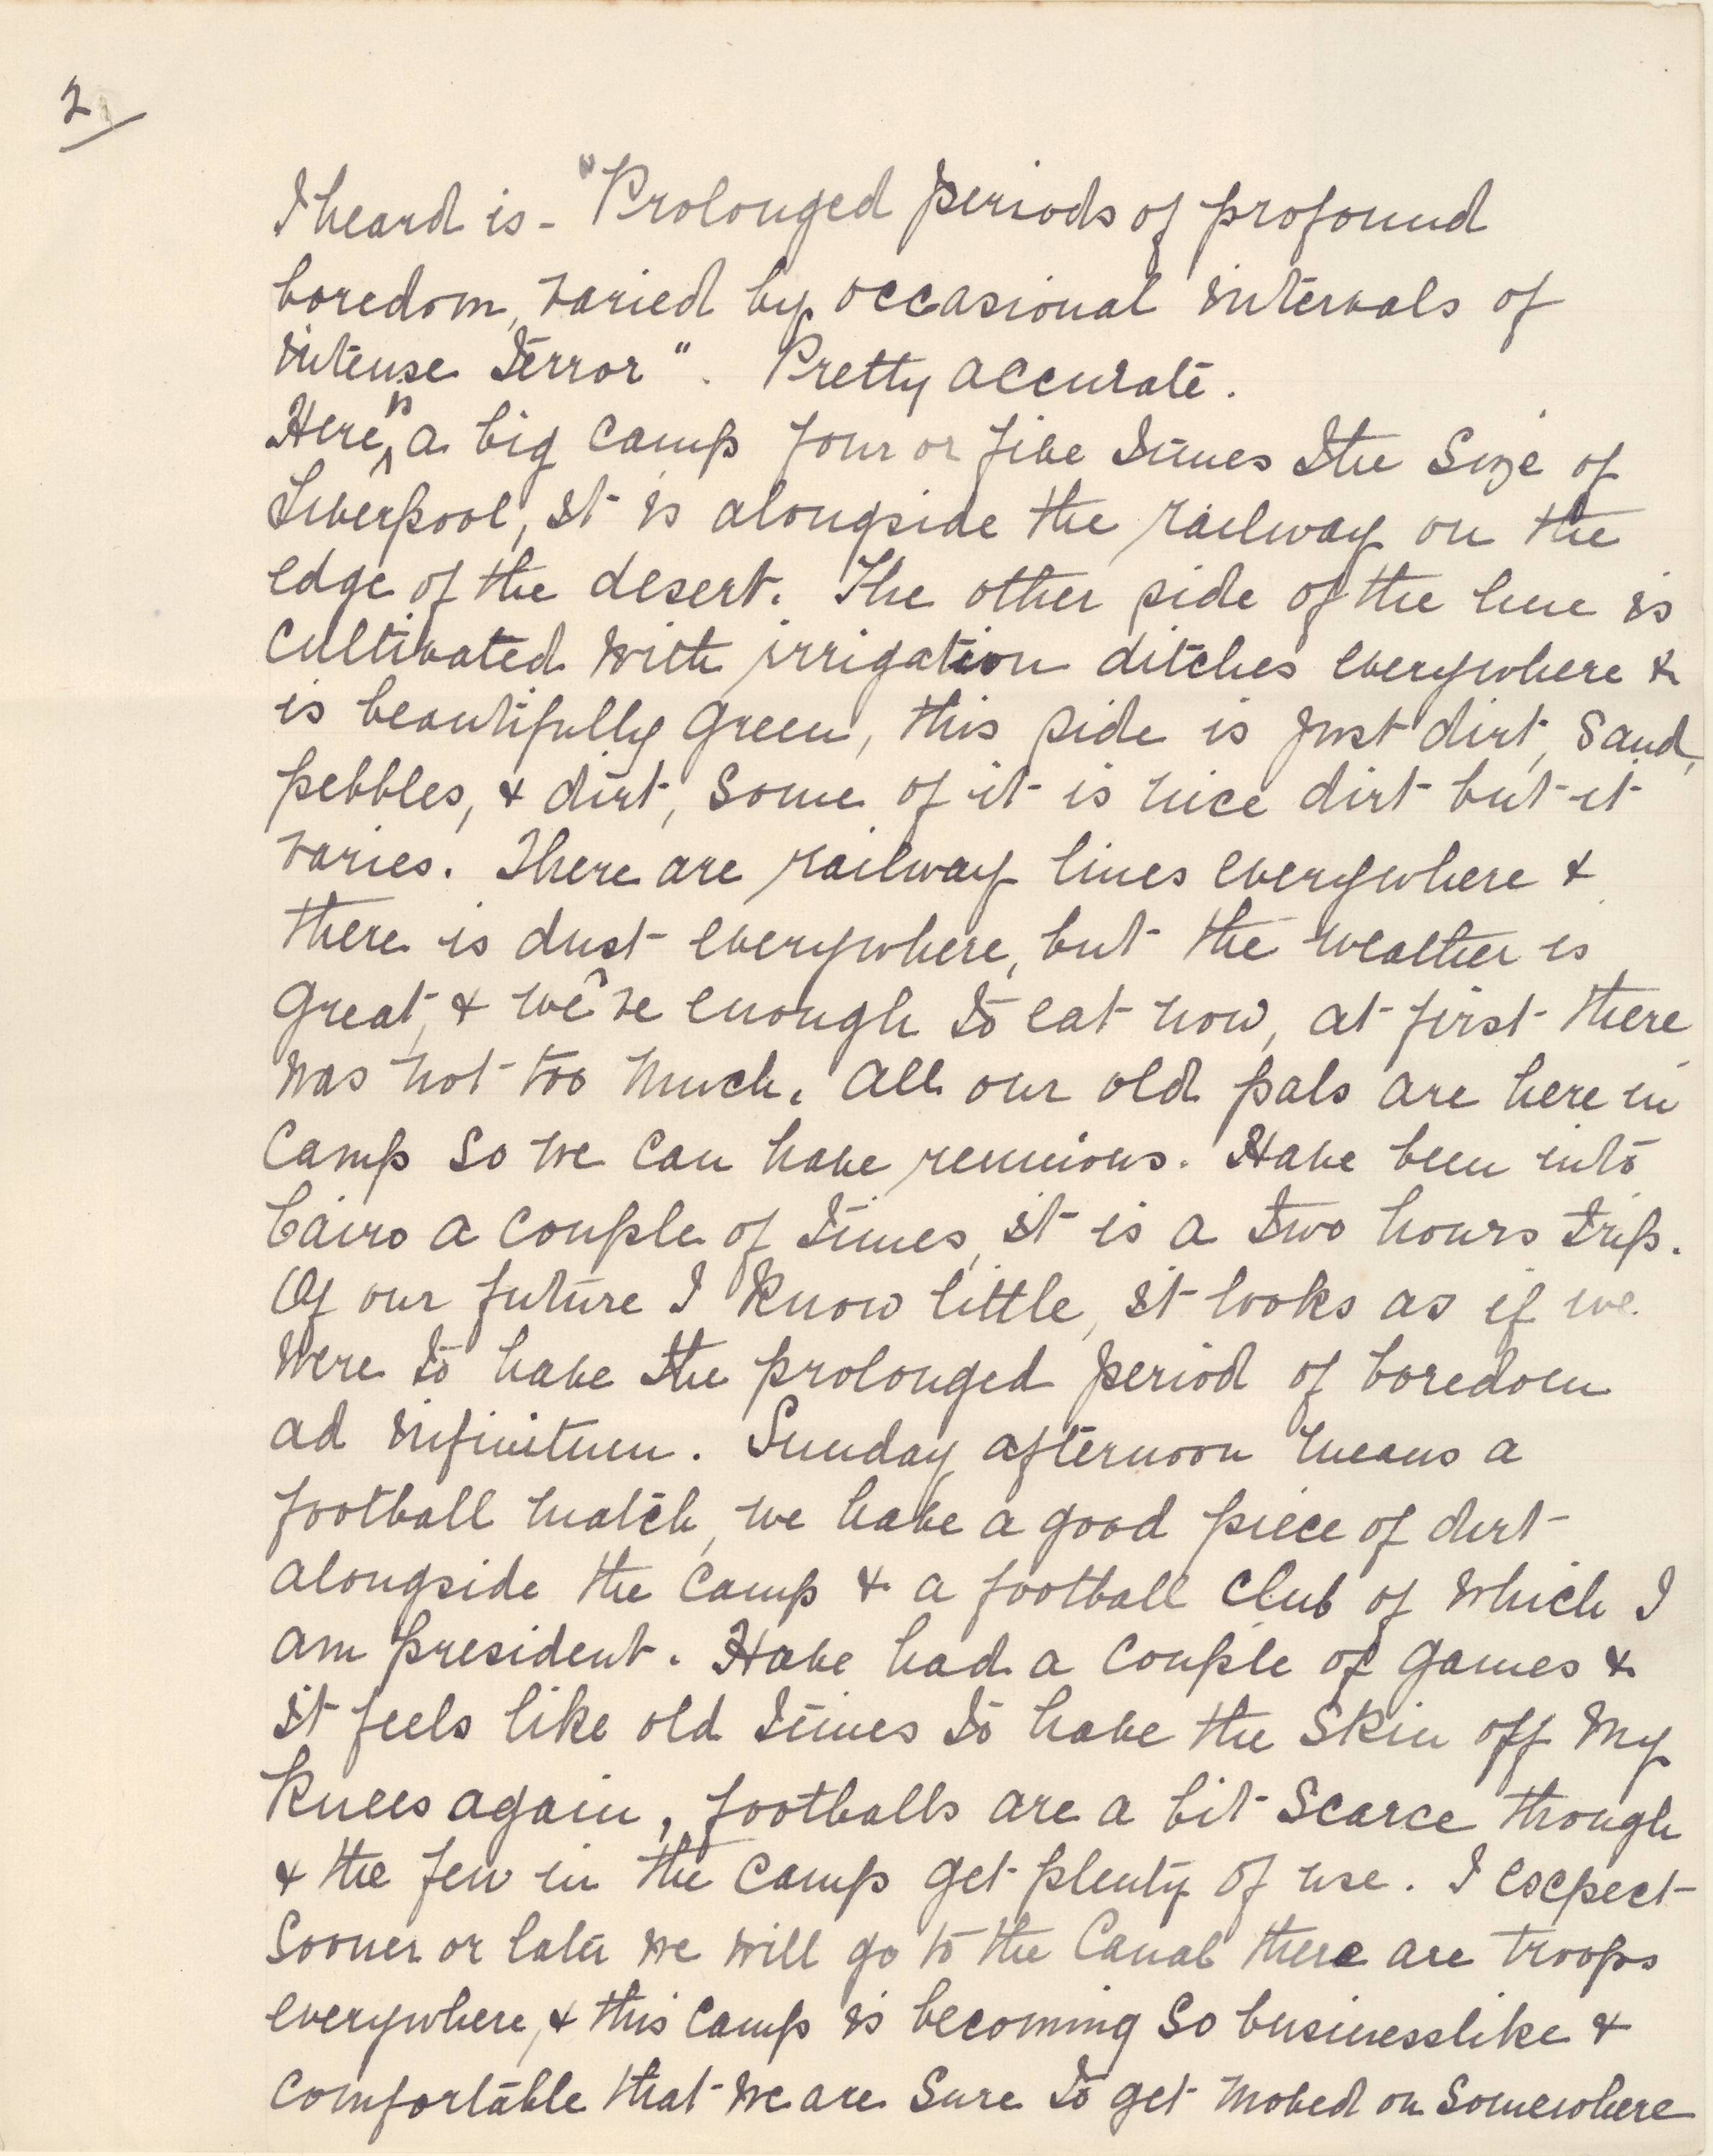 2
I heard is - "Prolonged periods of profound
boredom, varied by occasional intervals of
intense terror". Pretty accurate.
Here is a big camp four or five times the size of
Liverpool, it is alongside the railway on the
edge of the desert. The other side of the line is
cultivated with irrigation ditches everywhere &
is beautifully green, this side is just dirt, sand,
pebbles, & dirt, some of it is nice dirt but it
varies. There are railway lines everywhere &
there is dust everywhere, but the weather is
great, & we've enough to eat now, at first there
was not too much. All our old pals are here in
camp so we can have reunions. Have been into
Cairo a couple of times, it is a two hours trip.
Of our future I know little, it looks as if we
were to have the prolonged period of boredom
ad infinitum. Sunday afternoon means a
football match, we have a good piece of dirt
alongside the camp & a football club of which I
am president. Have had a couple of games &
it feels like old times to have the skin off my
knees again, footballs are a bit scarce though
& the few in the camp get plenty of use. I expect
sooner or later we will go to the Canal there are troops
everywhere, & this camp is becoming so businesslike &
comfortable that we are sure to get moved on somewhere